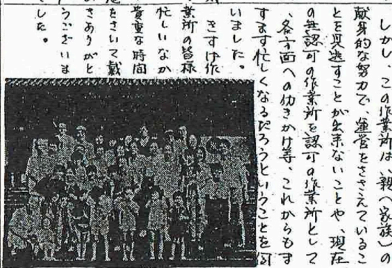 しかし、この作業所が、親(家族)の
献身的な努力で、運営をささえているこ
とを見逃すことが出来ないことや、現在
の無認可の作業所を認可の作業所として
、各方面への働きかけ等、これからもま
すます忙しくなるだろうということを
いました。
きすげ作
業所の皆様
忙しいなか
貴重な時間
をさいて戴
きありがと
うございま
した。